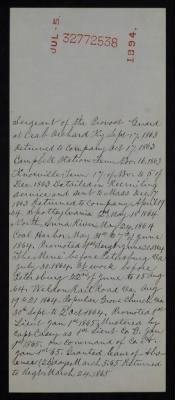 JUL. 5. 32772538 1894.
Sergeant of the Provost Guard
at Crab Orchard Ky Sept 17, 1863
Returned to Company Oct 17, 1863
Campbell Station Tenn Nov. 16, 1863
Knoxville Tenn 17 of Nov to 5 of
Dec. 1863 Detailed in Recruiting
service and sent to Mass Dec 7
1863 Returned to Company April
64. Spottsylvania May 18 1864
North Anna River May 24, 1864
Coal Harbor, May 30 to 7 of June
1864. Promoted
The Mine before Petersburg Va
July 30, 1864. At work before
Petersburg 22 of June to 15 Aug
64. Weldon Rail Road Va Aug
19 to 21 1864. Poplar Grove Church Va
30 Sept to 2 Oct 1864. Promoted 1st
Lieut Jany 1st 1865. Mustered by
Capt Casey as 1st Lieut Co
1865. In Command of Co
1865. Granted leave of Abs-
ence 1865 Returned
to Regt March 24, 1865